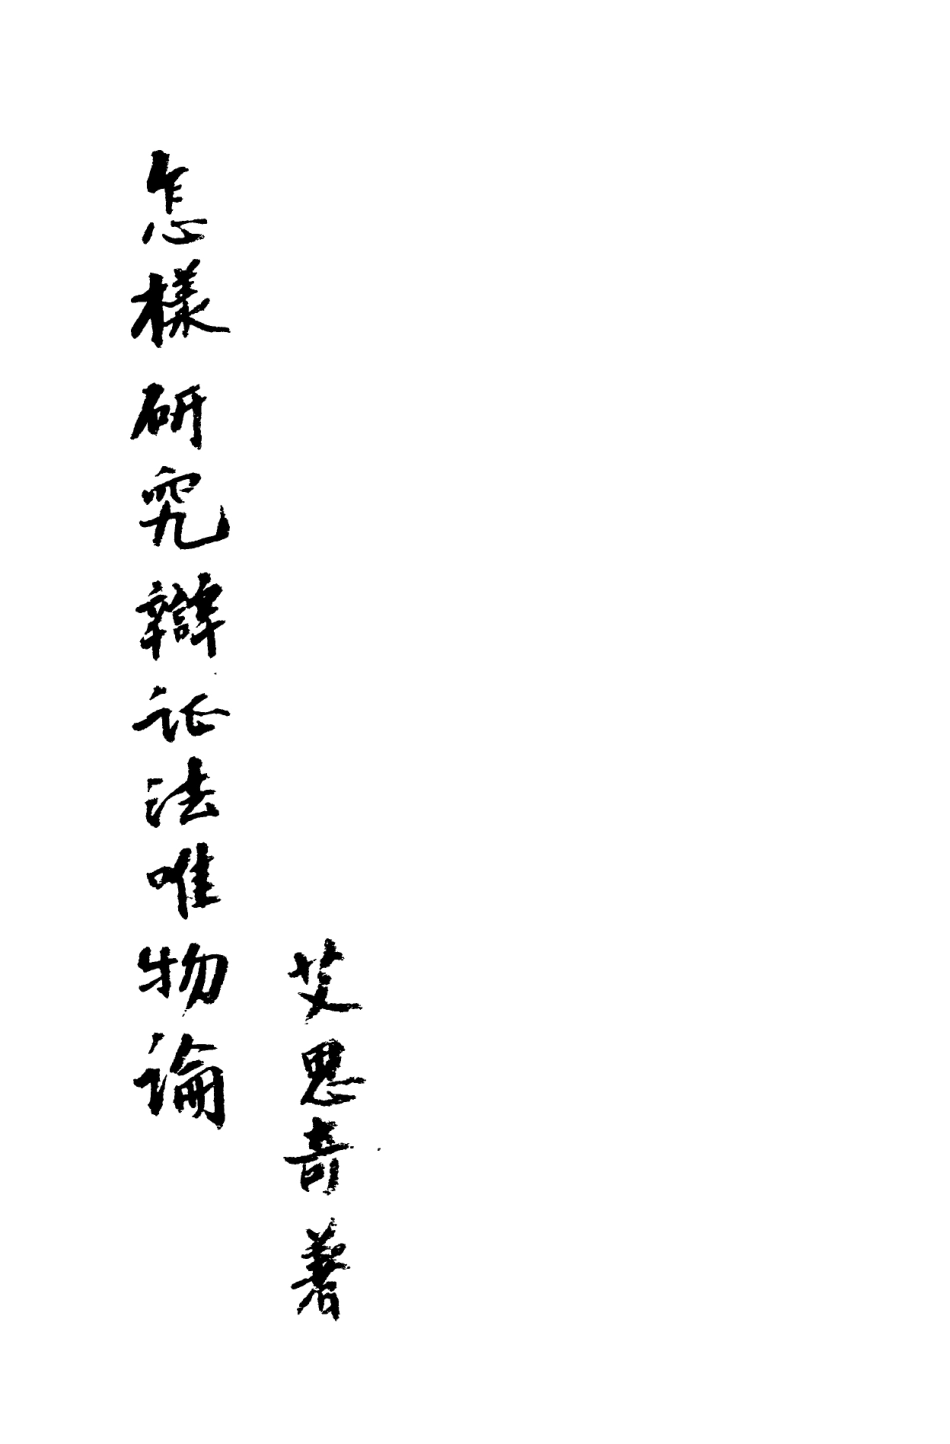 怎樣研究辯证法唯物論
艾思奇著